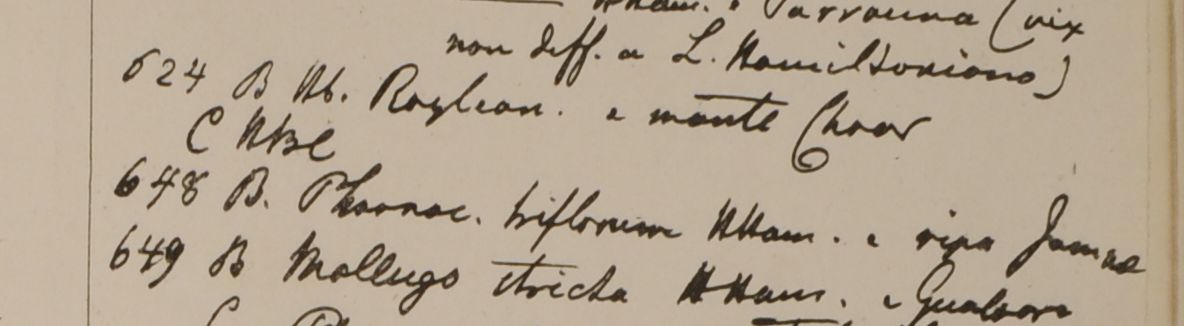 HHam. e Parrauna (vix
non diff. a L. Hamiltoniano)
624 B Hb. Roylean. e monte Choor
C HBC
648 B. Pharnac. triflorum HHam. e ripa Jamnae
649 B Mollugo stricta HHam. e Gualpara